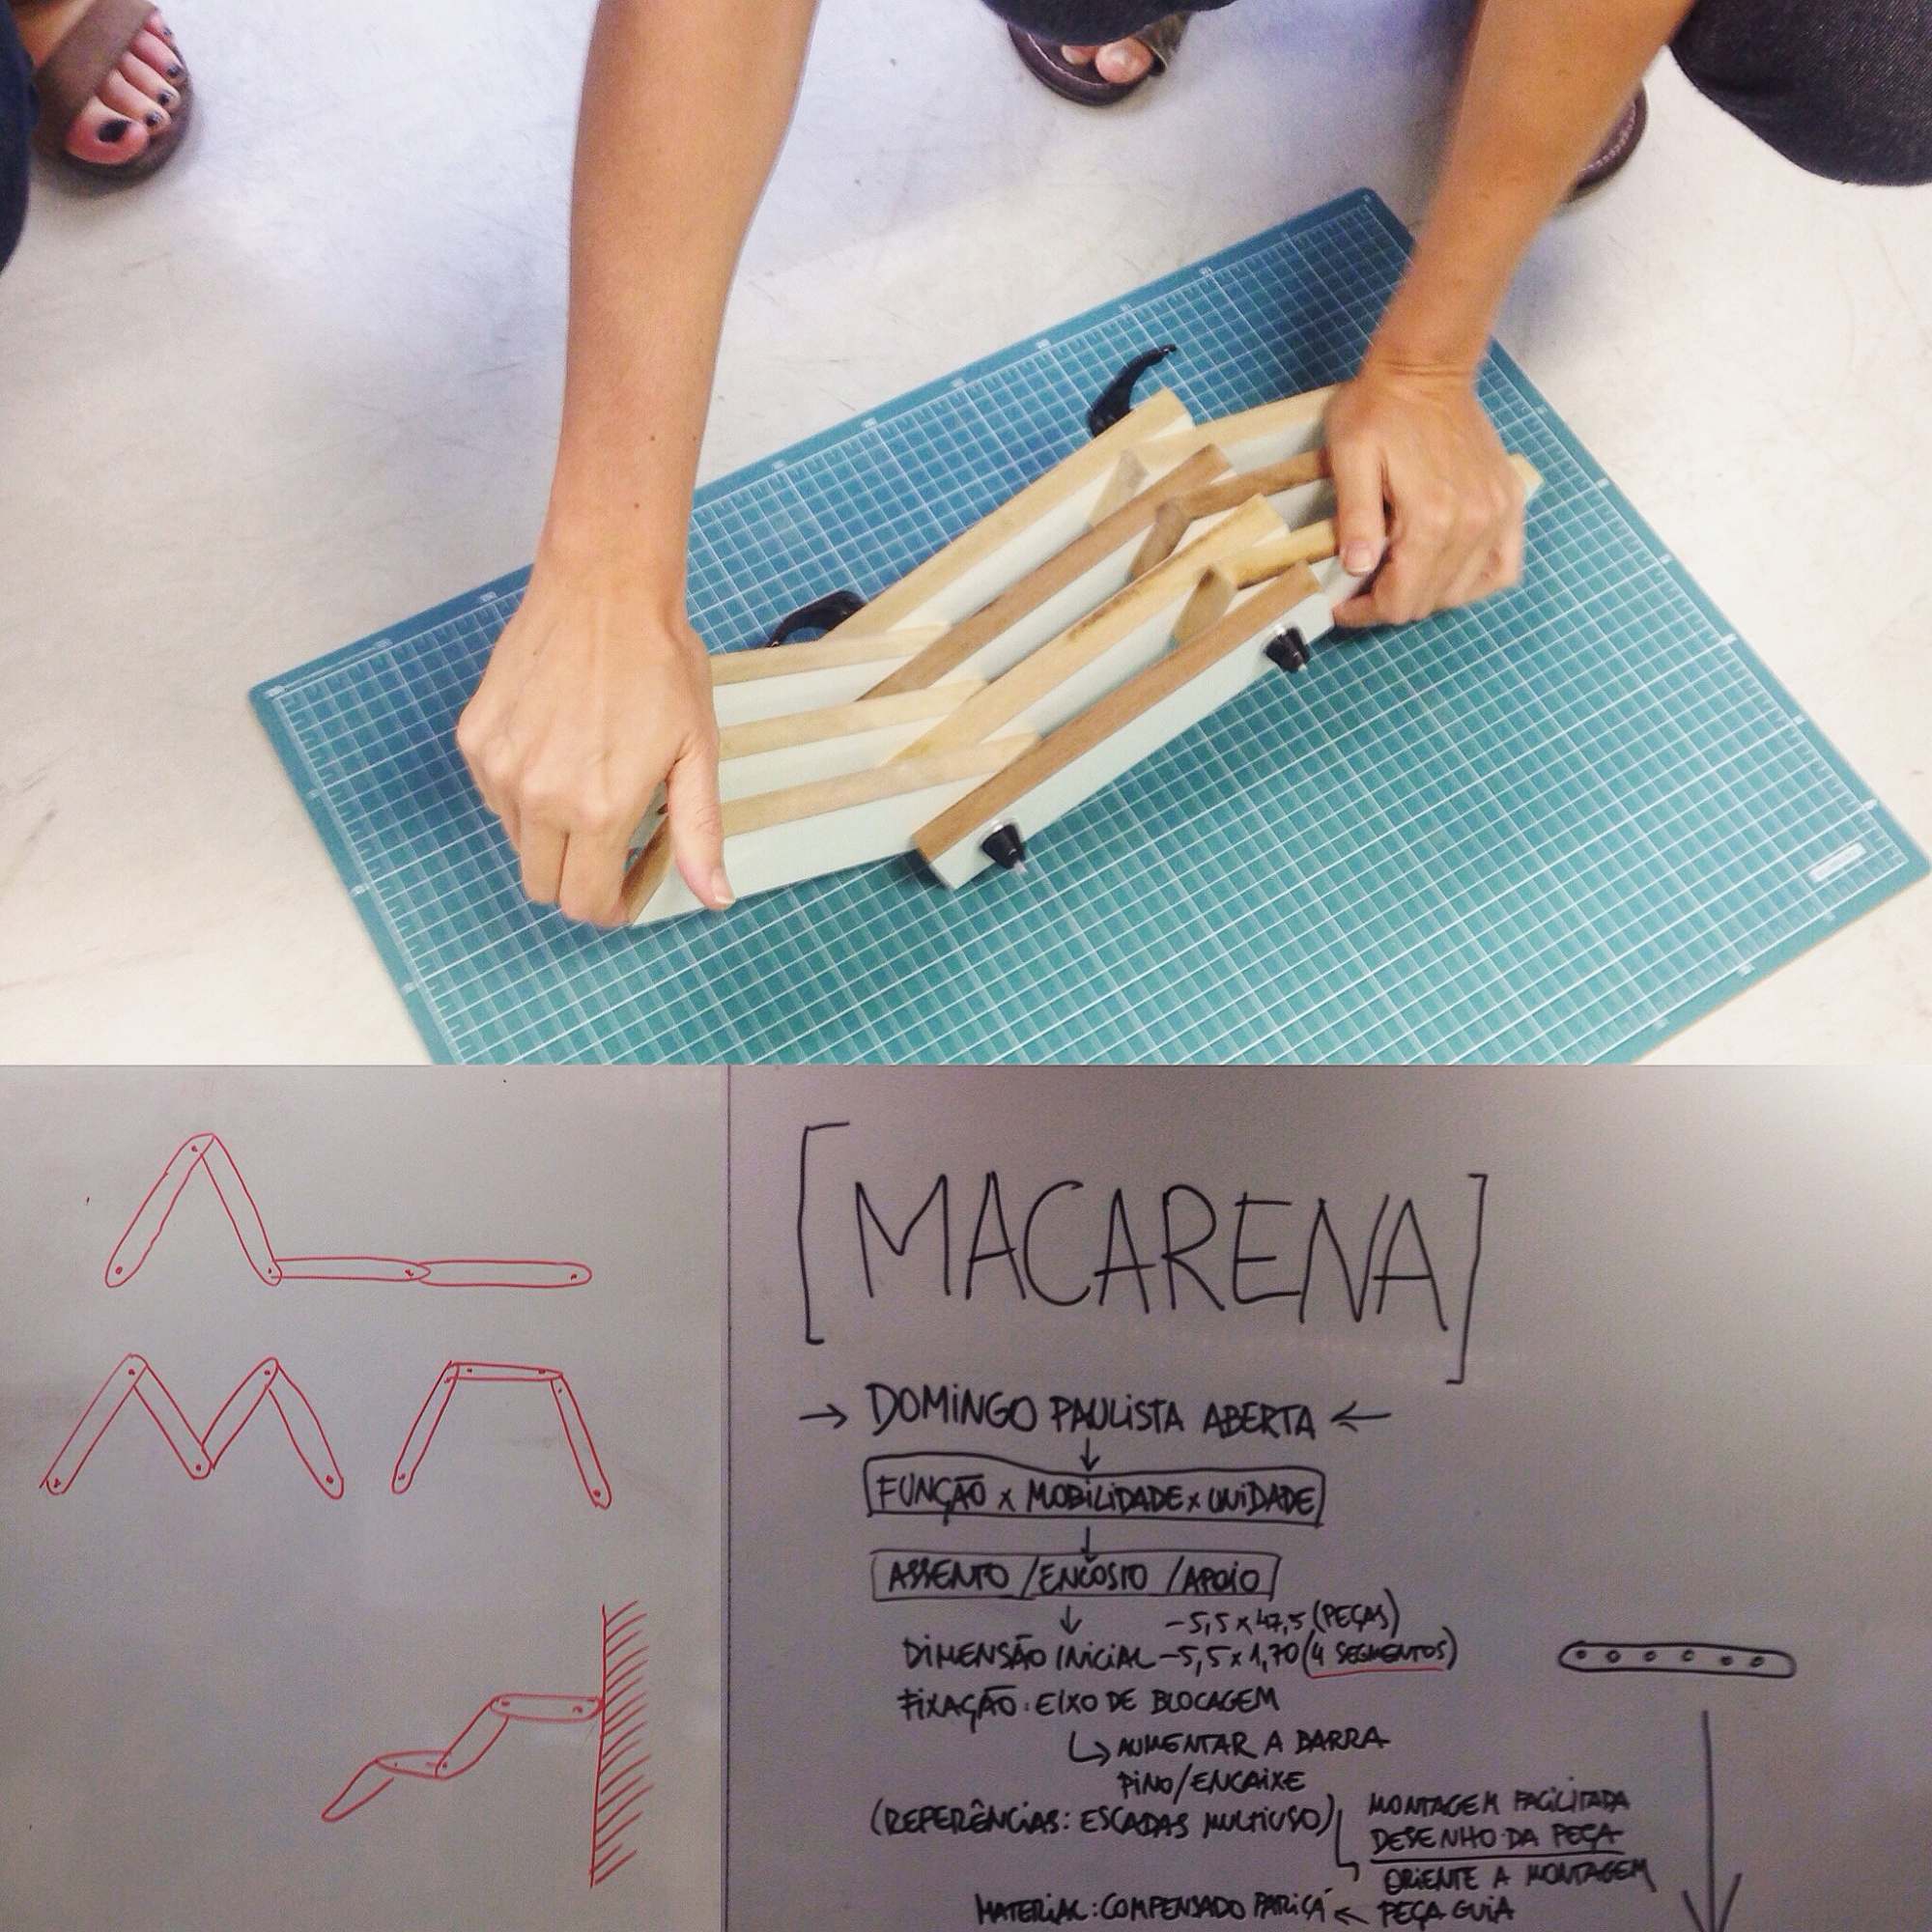 [MACARENA]
→ DOMINGO PAULISTA ABERTA ←
FUNÇÃO x MOBILIDADE x UNIDADE
ASSENTO / ENCOSTO / APOIO
- 5,5 x 47,5 (PEÇAS)
DIMENSÃO INICIAL - 5,5 x 1,70 (4 SEGMENTOS)
FIXAÇÃO: EIXO DE BLOCAGEM
↳ AUMENTAR A BARRA
PINO/ENCAIXE
(REFERÊNCIAS: ESCADAS MULTIUSO)
MONTAGEM FACILITADA
DESENHO DA PEÇA
ORIENTE A MONTAGEM
MATERIAL: COMPENSADO PARICÁ ← PEÇA GUIA